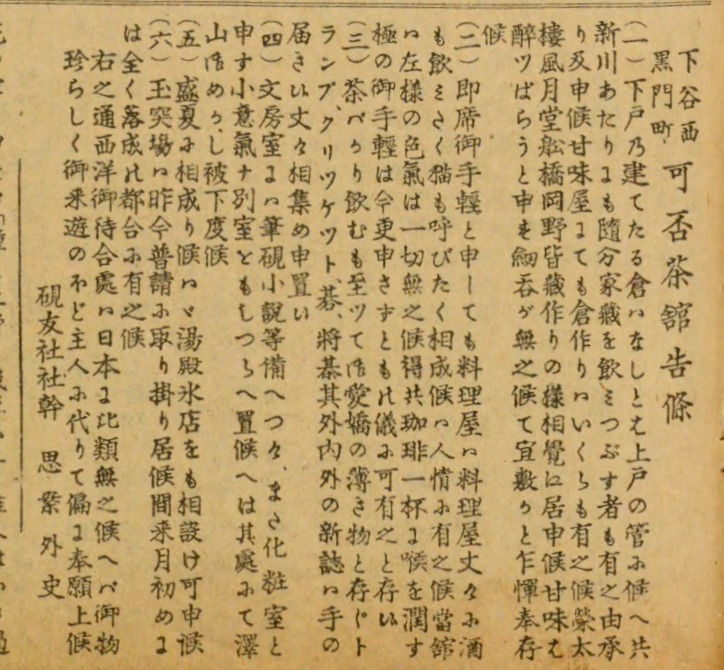 下谷西
黒門町
可否茶館告條
(一)下戸乃建てたる倉ハなしとは上戸の管に候へ共
新川あたりにも隨分家藏を飲ミつぶす者も有之由承
り及申候甘味屋にても倉作りハいくらも有之候榮太
樓風月堂舩橋岡野皆藏作りの樣相覺江居申候甘味は
醉ツぱらうと申を劒呑が無之候て宜敷かと乍憚奉存
候
(二)即席御手輕と申しても料理屋ハ料理屋丈々に酒
も飲ミたく猫も呼びたく相成候ハ人情に有之候當館
ハ左樣の色氣は一切無之候得共珈琲一杯に喉を潤す
極の御手輕は今更申さずとも此儀に可有之と存い
(三)茶ばかり飲むも至ツて愛嬌の薄き物と存じト
ランプ、クリツケツト、碁、將棊其外内外の新誌ハ手の
届きい丈々相集め申置い
(四)文房室にハ筆硯小説等備へつけ、また化粧室と
申す小意氣ナ別室をもしつらへ置候へは其處にて澤
山御めかし被下度候
(五)盛夏に相成り候ハヾ湯殿氷店をも相設け可申候
(六)玉突場ハ昨今普請に取り掛り居候間来月初めに
は全く落成此都合に有之候
右之通西洋御待合處ハ日本に比類無之候へバ御物
珍らしく御来遊のほど主人に代りて偏に奉願上候
硯友社社幹 思案外史